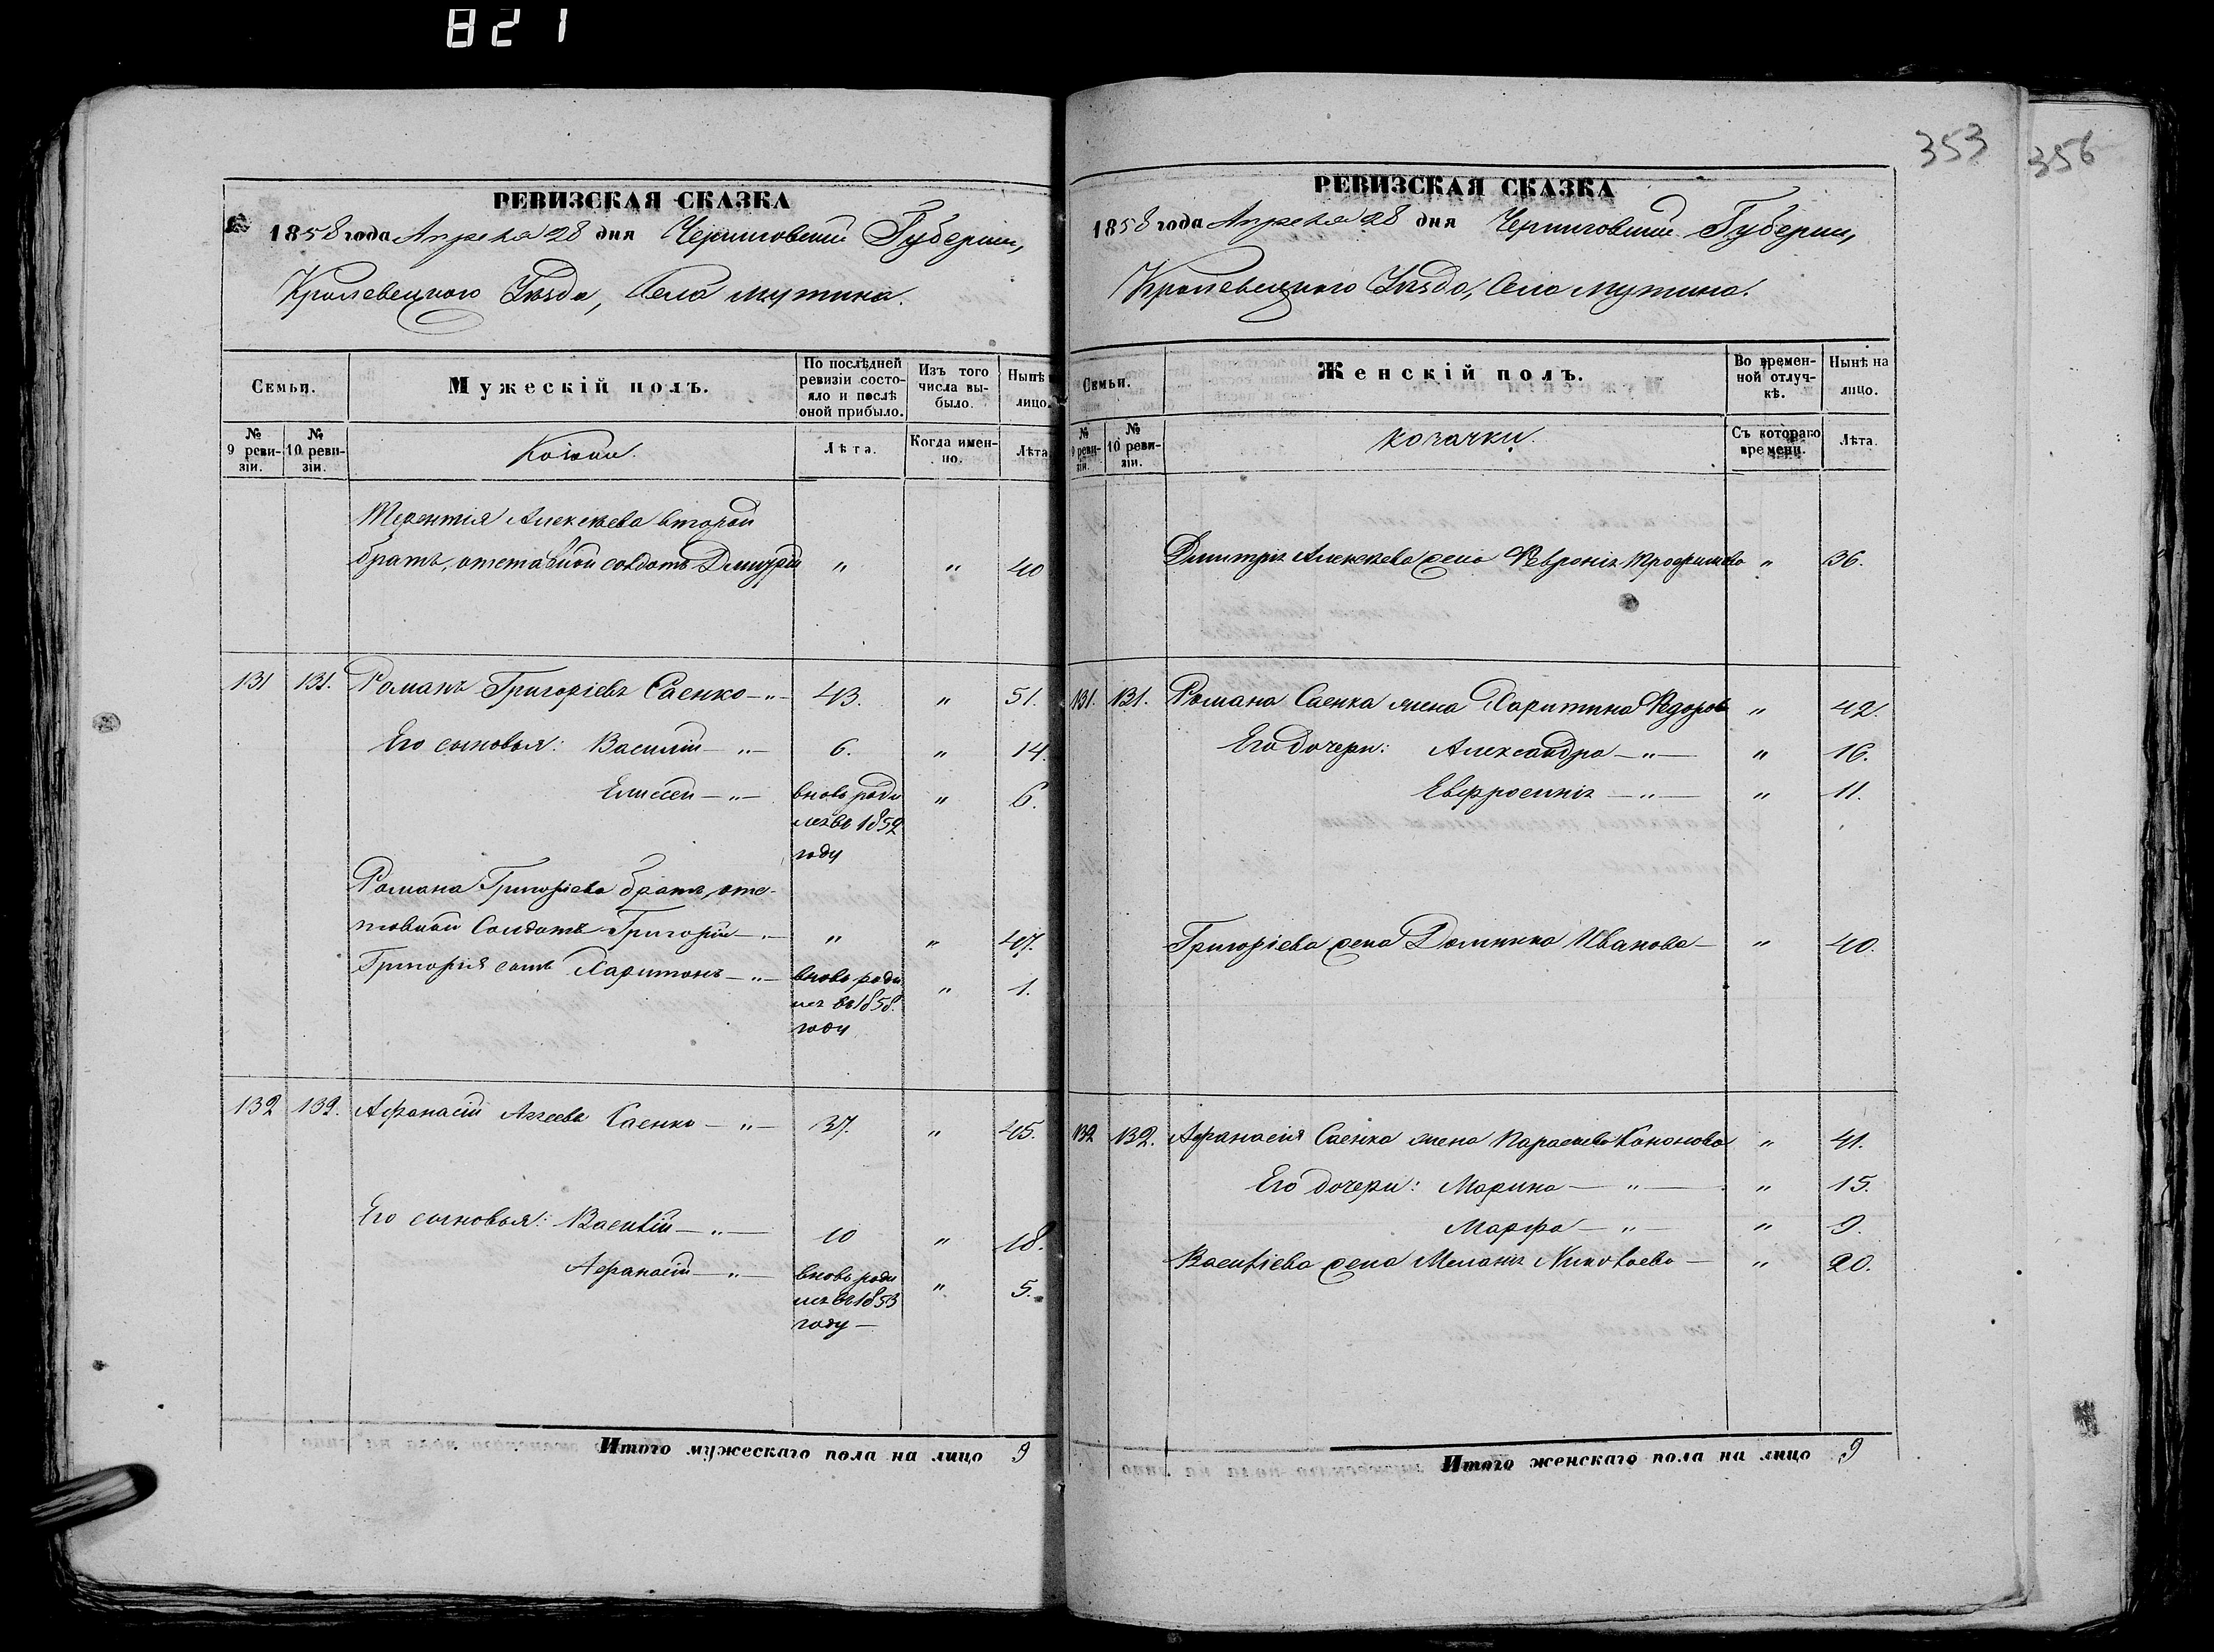 821
353
356
РЕВИЗСКАЯ СКАЗКА
1858 года Апреля 28 дня Черниговской Губернии,
Кролевецкого Уѣзда, Села Мутина.
Семьи.
Мужескій полъ.
По послѣдней ревизіи состояло и послѣ оной прибыло.
Изъ того числа выбыло.
Нынѣ
лицо.
№ 9 ревизіи.
№ 10 ревизіи.
Лѣта.
Когда именно.
Лѣта
Терентія Алексѣева второй
братъ, отставной солдатъ Дмитрій " " 40
131 131. Романъ Григоріевъ Саенко —"— 43. " 51.
Его сыновья: Василій —"— 6. " 14.
Елисей —"— вновь роди " 6.
лся въ 1852
году
Романа Григоріева братъ, отс-
тавной Солдатъ Григорій —"— " " 47.
Григорія сынъ Харитонъ —"— вновь роди " 1.
лся въ 1858.
году
132 132. Афанасій Агеевъ Саенко —"— 37. " 45.
Его сыновья: Василій —"— 10 " 18.
Афанасій —"— вновь роди " 5.
лся въ 1853
году —
Итого мужескаго пола на лицо 9
РЕВИЗСКАЯ СКАЗКА
1858 года Апреля 28 дня Черниговской Губернии,
Кролевецкого Уѣзда, Села Мутина.
Семьи.
Женскій полъ.
Во временной отлучкѣ.
Нынѣ на лицо.
№ 9 ревизіи.
№ 10 ревизіи.
козачки.
Съ котораго времени.
Лѣта.
Дмитрія Алексѣева жена Февронія Трофимова " 36.
131. 131. Романа Саенка жена Харитина Федоров " 42.
Его дочери: Александра —"— " 16.
Евфросинія —"— " 11.
Григоріева жена Домникія Иванова — " 40.
132 132. Афанасія Саенка жена Параскева Кононова " 41.
Его дочери: Марина —"— " 15.
Марфа —"— " 9.
Василіева жена Меланія Николаева — " 20.
Итого женскаго пола на лицо 9